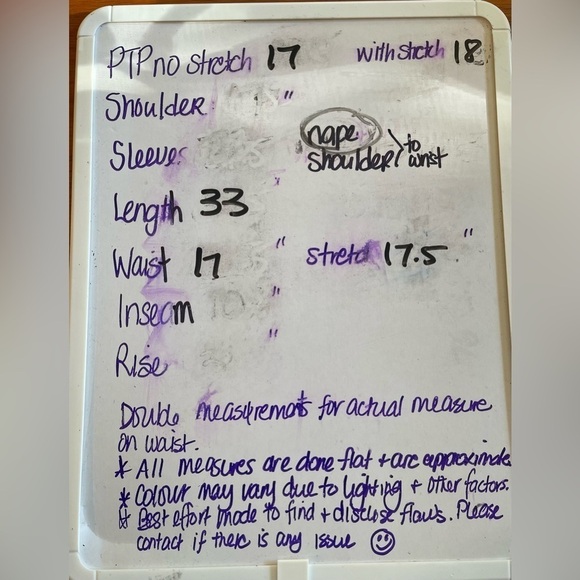 PTP no stretch 17 with stretch 18
Shoulder "
Sleeves nape shoulder > to wrist
Length 33
Waist 17 " stretch 17.5 "
Inseam "
Rise "
Double measurements for actual measure
on waist.
* All measures are done flat + are approximate
* Colour may vary due to lighting + other factors.
* Best effort made to find + disclose flaws. Please
contact if there is any issue ☺